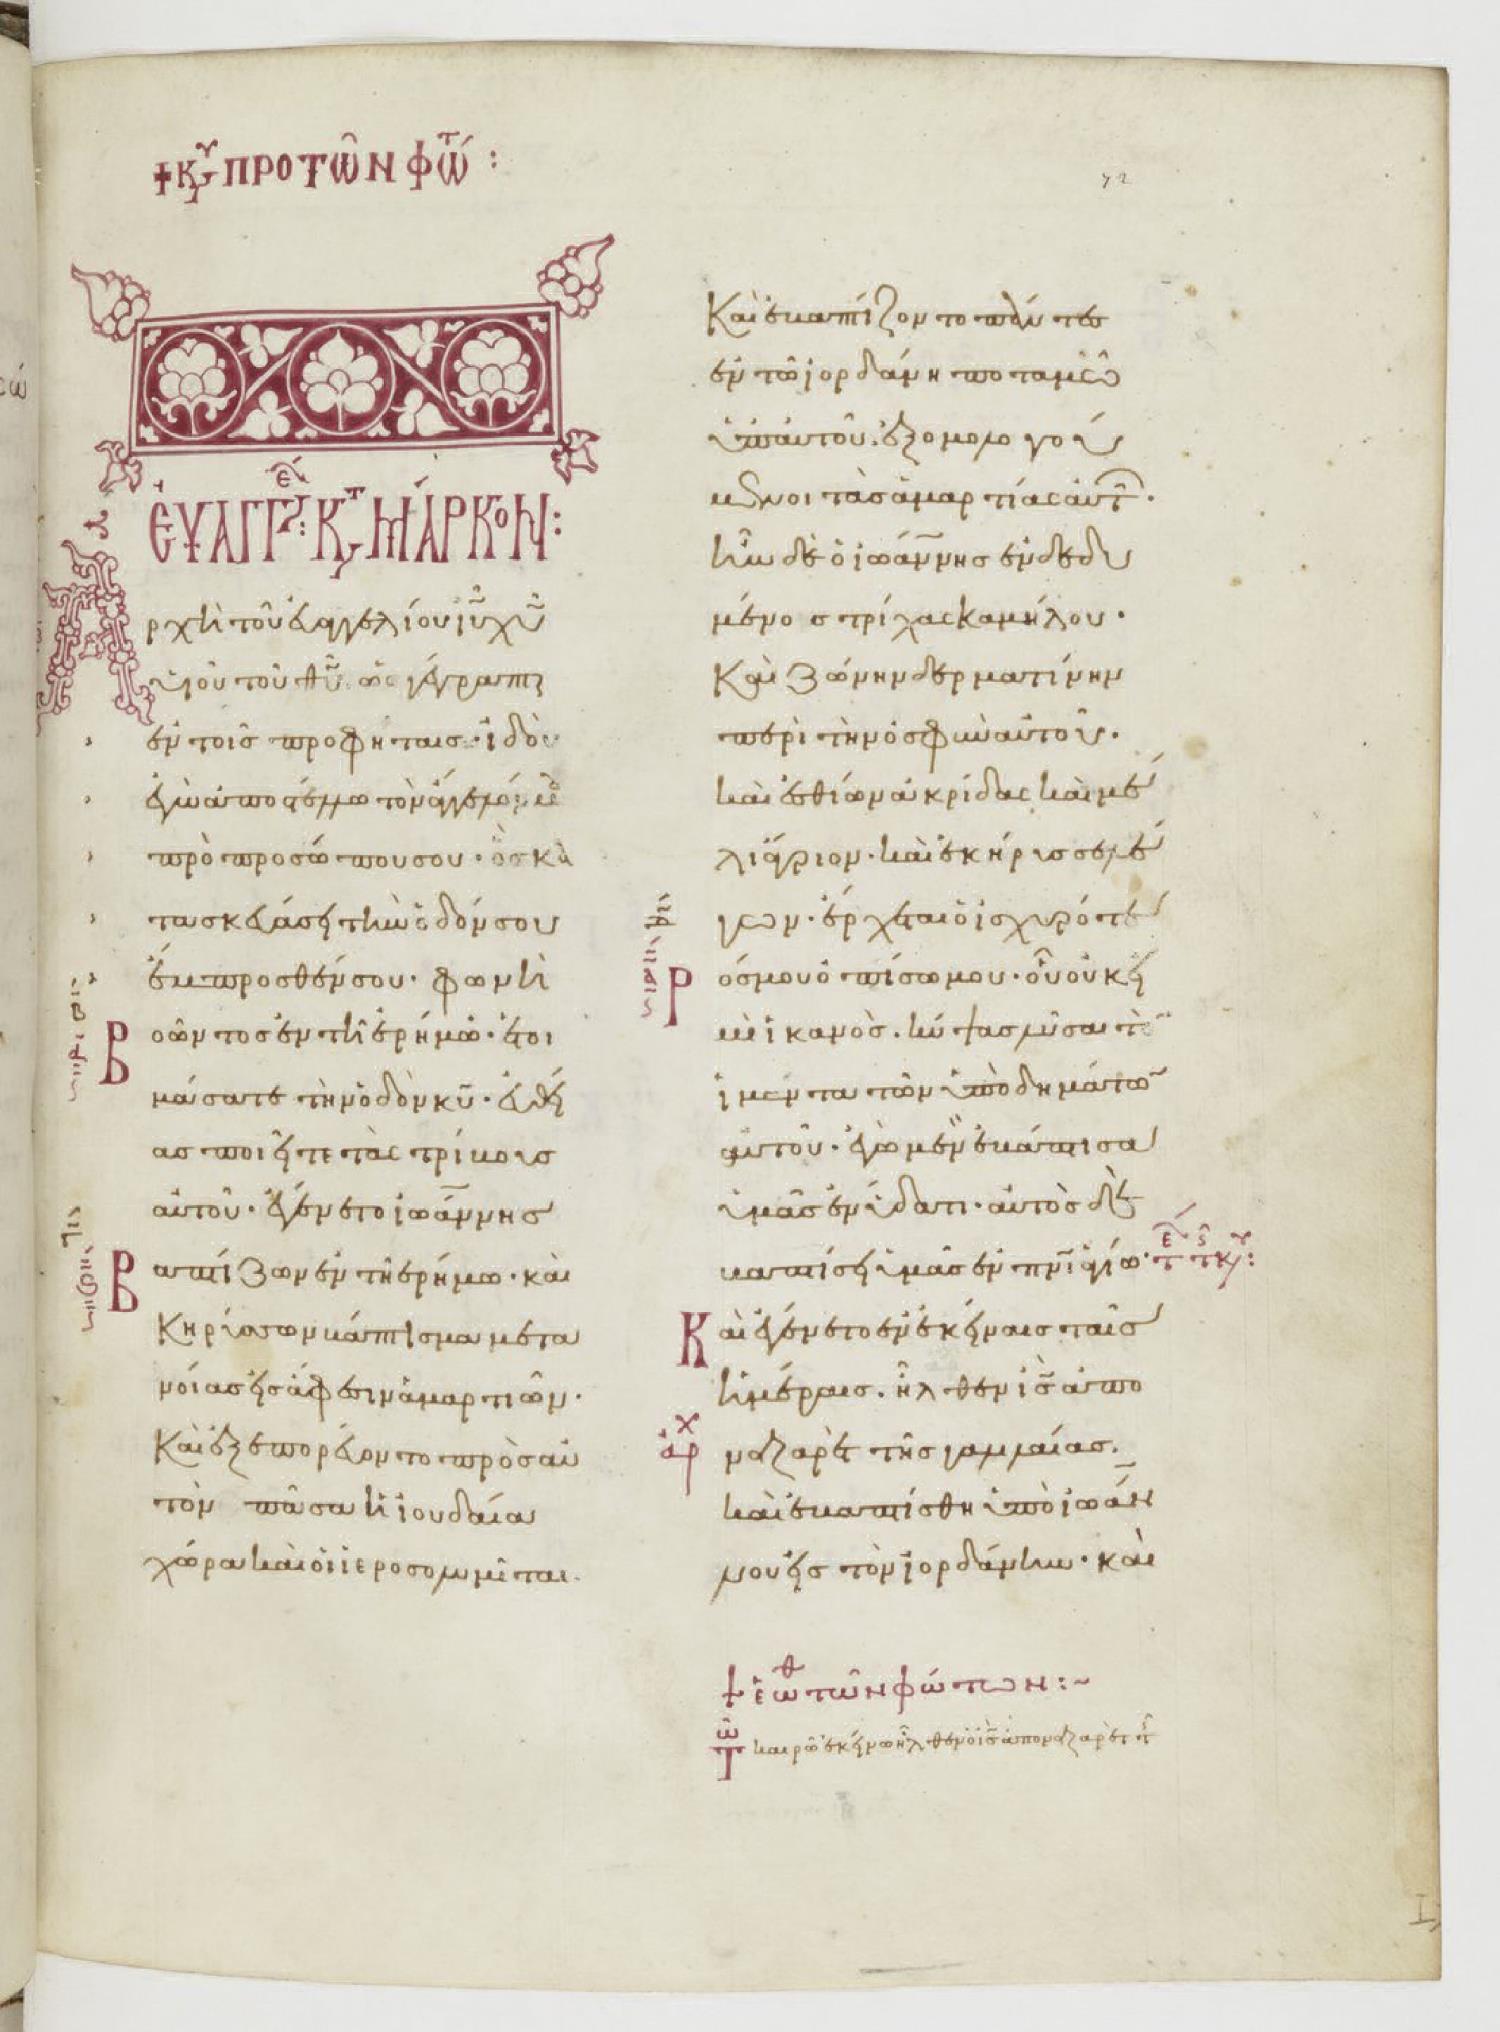 ✝ κυ προ τῶν φώτ :
72
ἐυαγγελ: κτ μάρκον:
Αρχὴ τοῦ ἐυαγγελίου ιῡ χῡ
υἱοῦ τοῦ θῡ. ὡς γέγραπτ
ἐν τοῖς προφήταις· ἰδοὺ
ἐγὼ ἀποστέλλω τὸν ἄγγελόν μου
πρὸ προσώπου σου· ὃς κα
τασκευάσει τὴν ὁδόν σου
ἔμπροσθέν σου· φωνὴ
Βοῶντος ἐν τῆ ἐρήμω· ἑτοι
μάσατε τὴν ὁδὸν κῡ· ἐυθεί
ας ποιεῖτε τὰς τρίβους
αὐτοῦ· ἐγένετο ἰωάννης
Βαπτίζων ἐν τῆ ἐρήμω· καὶ
Κηρύσσων βάπτισμα μετα
νοίας εἰς ἄφεσιν ἁμαρτιῶν·
Καὶ ἐξεπορεύοντο πρὸς αὐ
τὸν πᾶσα ἡ ἰουδαία
χώρα καὶ οἱ ἱεροσολυμῖται·
Καὶ ἐβαπτίζοντο πάντες
ἐν τῶ ἰορδάνη ποταμῶ
ὑπ αὐτοῦ. ἐξομολογού
μενοι τὰς ἁμαρτίας αὐτῶν·
ἦν δὲ ὁ ἰωάννης ἐνδεδυ
μένος τρίχας καμήλου·
Καὶ ζώνην δερματίνην
περὶ τὴν ὀσφὺν αὐτοῦ·
καὶ ἐσθίων ἀκρίδας καὶ μέ
λι ἄγριον· καὶ ἐκήρυσσε λέ
γων· ἔρχεται ὁ ἰσχυρότε
Ρος μου ὀπίσω μου· οὗ οὐκ εἰ
μὶ ἱκανὸς. κύψας λῦσαι τὸν
ἱμάντα τῶν ὑποδημάτων
αὐτοῦ· ἐγὼ μὲν ἐβάπτισα
ὑμᾶς ἐν ὕδατι· αὐτὸς δὲ
βαπτίσει ὑμᾶς ἐν πνῑ ἁγίω·
Καὶ ἐγένετο ἐν ἐκείναις ταῖς
ἡμέραις. ἦλθεν ἰς̄ ἀπὸ
αρχ
ναζαρὲτ τῆς γαλιλαίας.
καὶ ἐβαπτίσθη ὑπὸ ἰωάν
νου εἰς τὸν ἰορδάνην· καὶ
✝ ἑωθ τῶν φώτων :~
Τω καιρῶ ἐκείνω ἦλθεν ὁ ἰς̄ ἀπὸ ναζαρὲτ τῆς